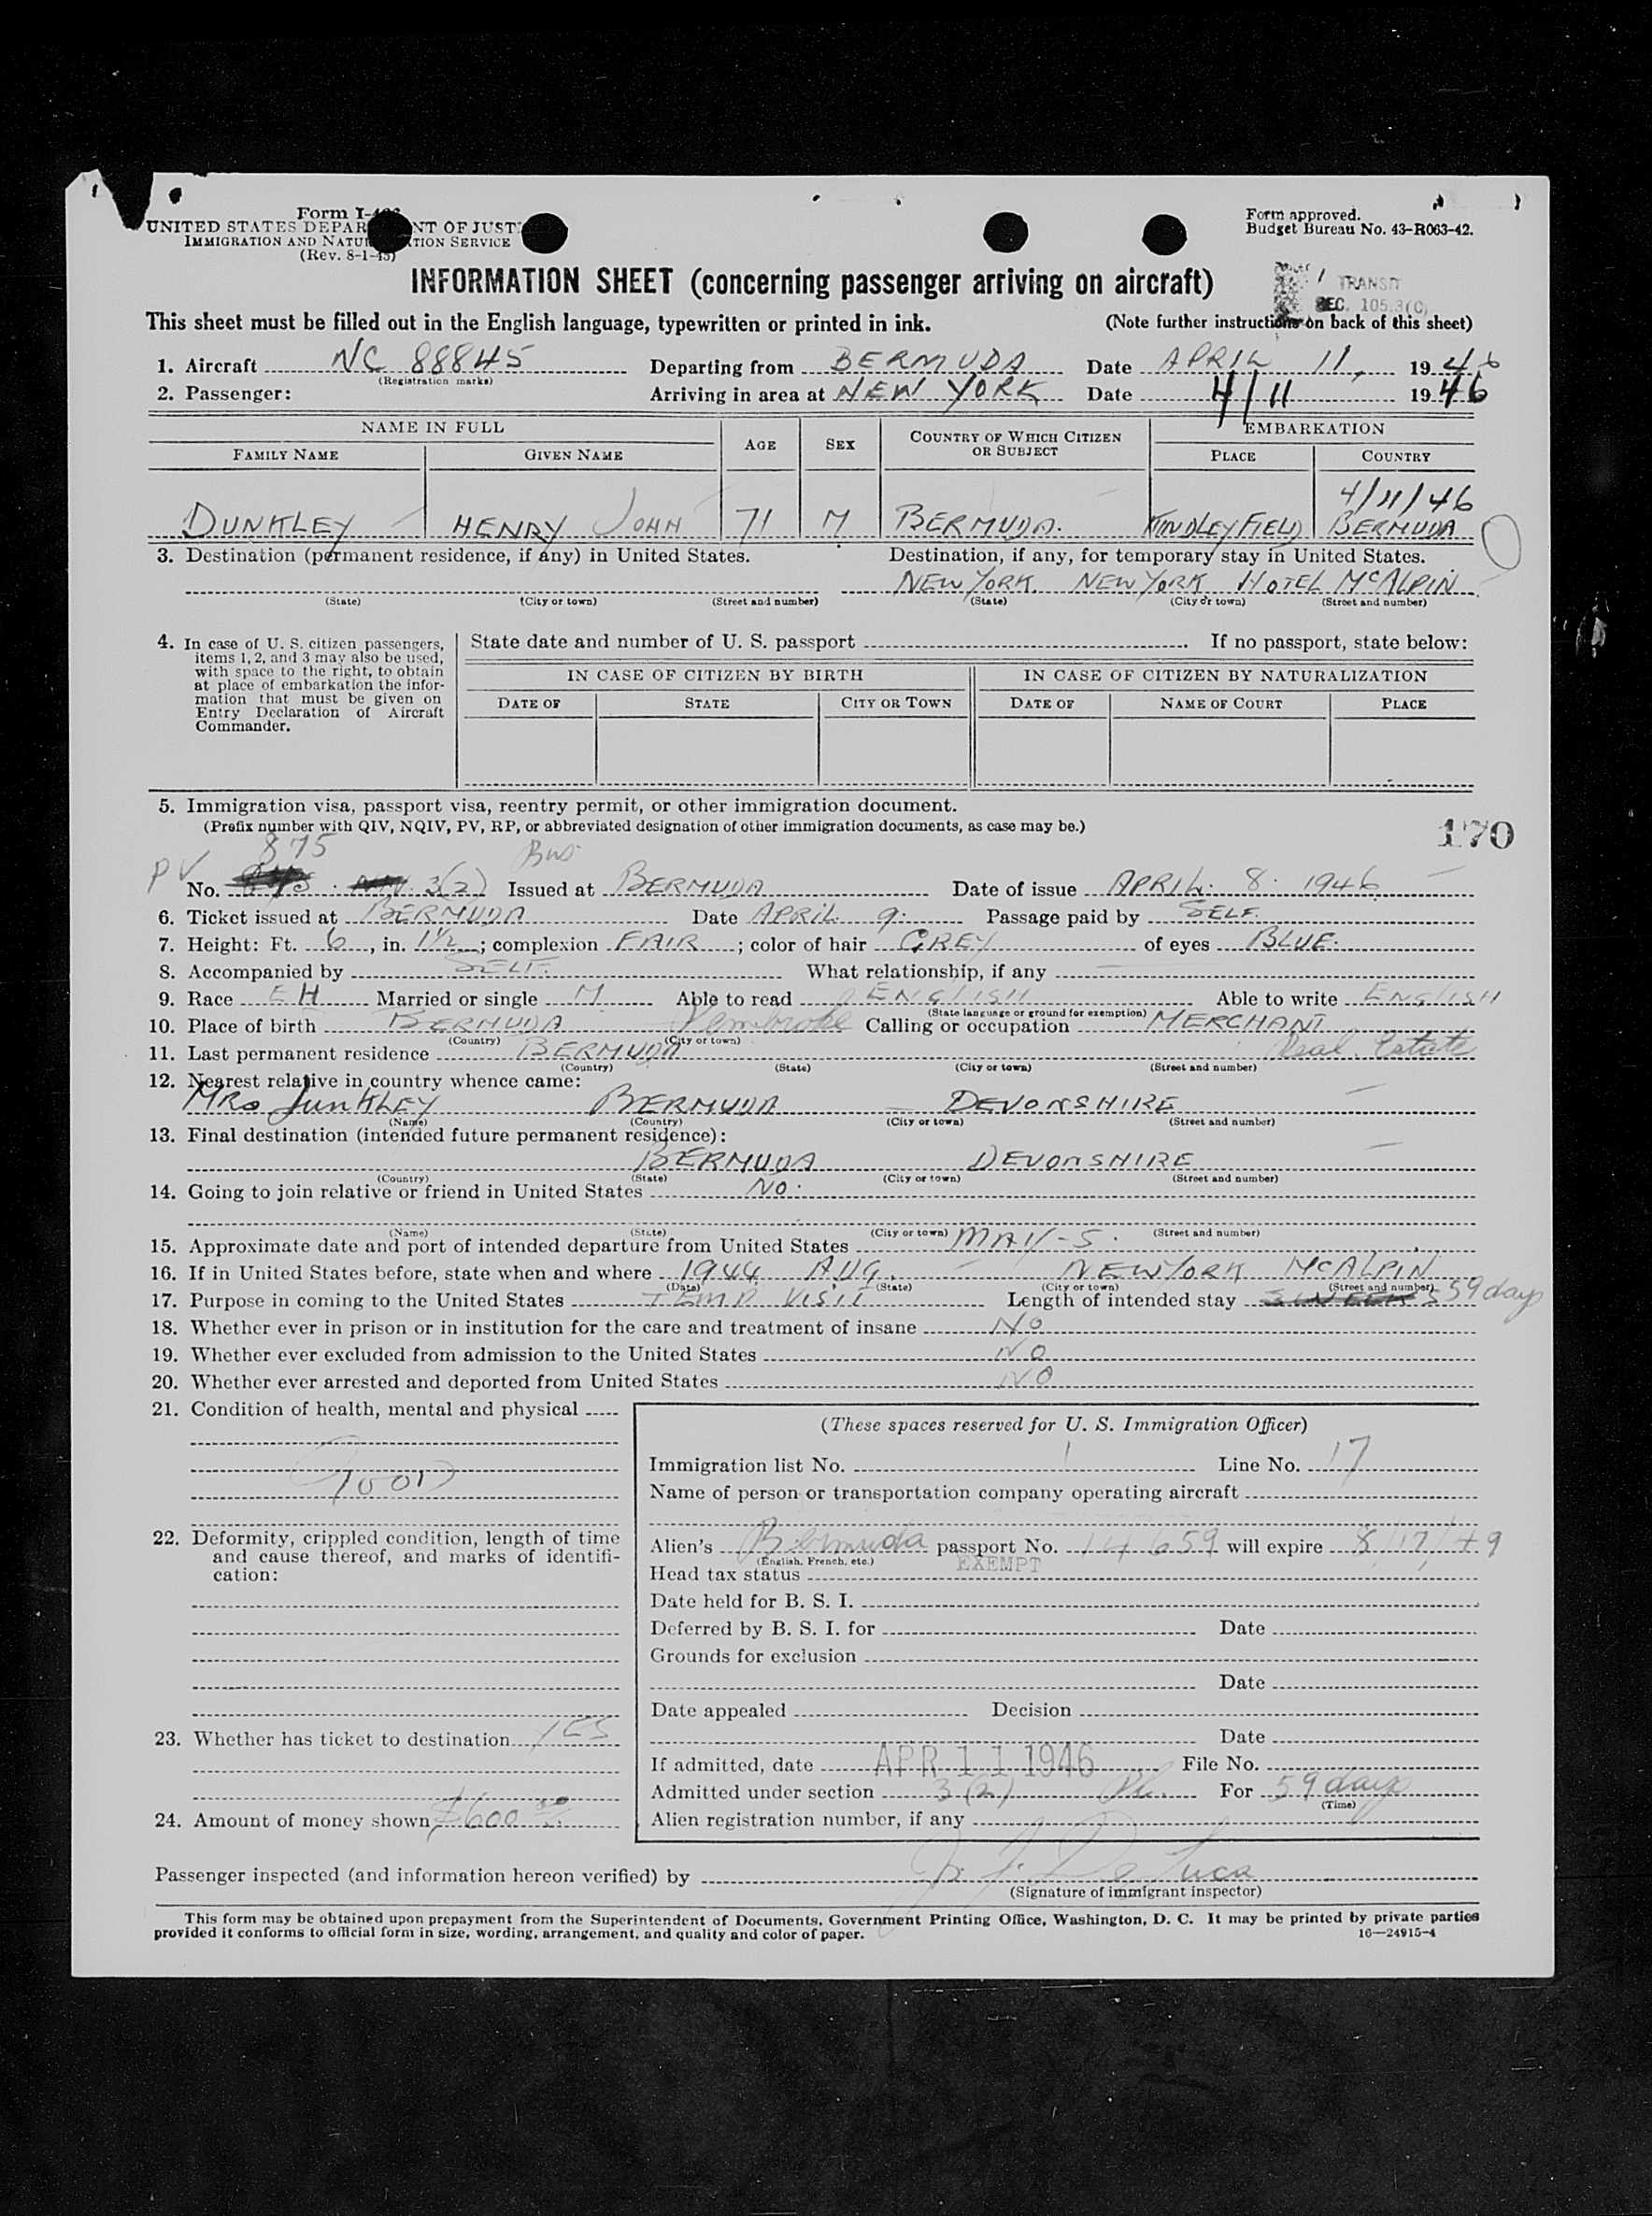 Form I-
UNITED STATES DEPAR NT OF JUST
IMMIGRATION AND NATU TION SERVICE
(Rev. 8-1-45)
Form approved.
Budget Bureau No. 43-R063-42.
INFORMATION SHEET (concerning passenger arriving on aircraft)
TRANSIT
SEC. 105.3(C)
This sheet must be filled out in the English language, typewritten or printed in ink.
(Note further instructions on back of this sheet)
1. Aircraft NC 88845 Departing from BERMUDA Date APRIL 11, 1946
(Registration marks)
2. Passenger: Arriving in area at NEW YORK Date 4/11 1946
NAME IN FULL AGE SEX COUNTRY OF WHICH CITIZEN OR SUBJECT EMBARKATION
FAMILY NAME GIVEN NAME PLACE COUNTRY
4/11/46
DUNKLEY HENRY JOHN 71 M BERMUDA. KINDLEY FIELD BERMUDA
3. Destination (permanent residence, if any) in United States. Destination, if any, for temporary stay in United States.
NEW YORK. NEW YORK HOTEL McALPIN
(State) (City or town) (Street and number) (State) (City or town) (Street and number)
4. In case of U. S. citizen passengers, items 1, 2, and 3 may also be used, with space to the right, to obtain at place of embarkation the information that must be given on Entry Declaration of Aircraft Commander.
State date and number of U. S. passport If no passport, state below:
IN CASE OF CITIZEN BY BIRTH IN CASE OF CITIZEN BY NATURALIZATION
DATE OF STATE CITY OR TOWN DATE OF NAME OF COURT PLACE
5. Immigration visa, passport visa, reentry permit, or other immigration document.
(Prefix number with QIV, NQIV, PV, RP, or abbreviated designation of other immigration documents, as case may be.)
170
875 Bus.
PV No. 3(2) Issued at BERMUDA Date of issue APRIL. 8. 1946
6. Ticket issued at BERMUDA Date APRIL 9. Passage paid by SELF.
7. Height: Ft. 6, in. 1½; complexion FAIR; color of hair GREY of eyes BLUE.
8. Accompanied by SELF. What relationship, if any
9. Race EH Married or single M Able to read ENGLISH Able to write ENGLISH
(State language or ground for exemption)
10. Place of birth BERMUDA Pembroke Calling or occupation MERCHANT
(Country) (City or town)
Real Estate
11. Last permanent residence BERMUDA
(Country) (State) (City or town) (Street and number)
12. Nearest relative in country whence came:
MRS DUNKLEY BERMUDA DEVONSHIRE
(Name) (Country) (City or town) (Street and number)
13. Final destination (intended future permanent residence):
BERMUDA DEVONSHIRE
(Country) (State) (City or town) (Street and number)
14. Going to join relative or friend in United States NO.
(Name) (State) (City or town) (Street and number)
15. Approximate date and port of intended departure from United States MAY-5.
16. If in United States before, state when and where 1944 AUG. NEW YORK McALPIN
(Date) (State) (City or town) (Street and number)
17. Purpose in coming to the United States TEMP. VISIT Length of intended stay 59 days
18. Whether ever in prison or in institution for the care and treatment of insane NO
19. Whether ever excluded from admission to the United States NO
20. Whether ever arrested and deported from United States NO
21. Condition of health, mental and physical
GOOD
22. Deformity, crippled condition, length of time and cause thereof, and marks of identification:
23. Whether has ticket to destination YES
24. Amount of money shown $600.00
(These spaces reserved for U. S. Immigration Officer)
Immigration list No. 1 Line No. 17
Name of person or transportation company operating aircraft
Alien's Bermuda passport No. 14659 will expire 8/17/49
(English, French, etc.)
Head tax status EXEMPT
Date held for B. S. I.
Deferred by B. S. I. for Date
Grounds for exclusion
Date
Date appealed Decision
Date
If admitted, date APR 11 1946 File No.
Admitted under section 3(2) For 59 days
(Time)
Alien registration number, if any
Passenger inspected (and information hereon verified) by J. J. De Luca
(Signature of immigrant inspector)
This form may be obtained upon prepayment from the Superintendent of Documents, Government Printing Office, Washington, D. C. It may be printed by private parties
provided it conforms to official form in size, wording, arrangement, and quality and color of paper.
16—24915-4